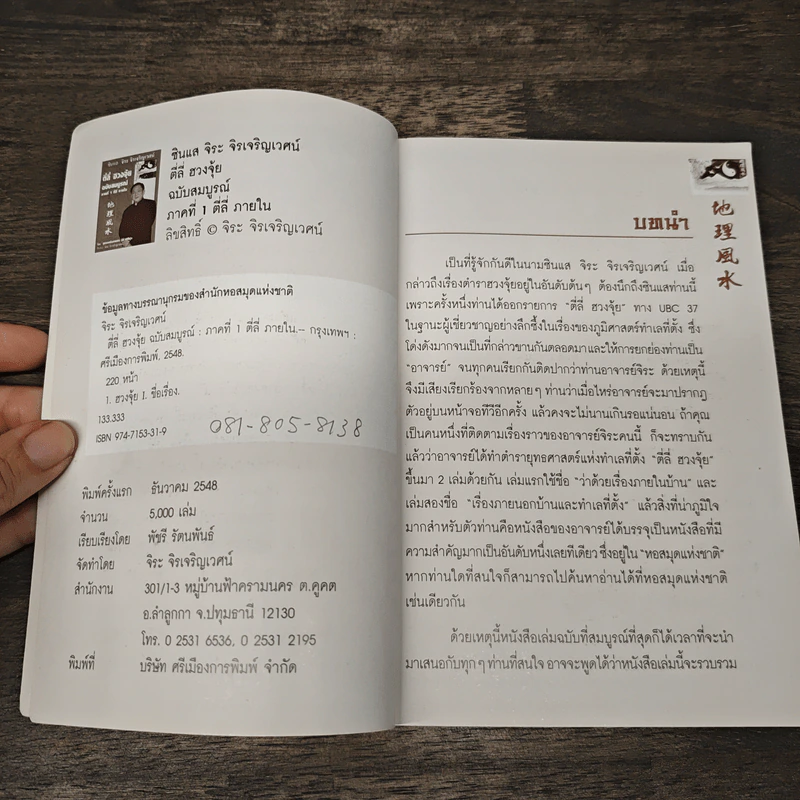 ซินแส จิระ จิรเจริญเวศน์
ตี่ลี่ ฮวงจุ้ย
ฉบับสมบูรณ์
ภาคที่ 1 ตี่ลี่ ภายใน
ลิขสิทธิ์ © จิระ จิรเจริญเวศน์
ตี่ลี่ ฮวงจุ้ย
ฉบับสมบูรณ์
地理風水
ข้อมูลทางบรรณานุกรมของสำนักหอสมุดแห่งชาติ
จิระ จิรเจริญเวศน์
ตี่ลี่ ฮวงจุ้ย ฉบับสมบูรณ์ : ภาคที่ 1 ตี่ลี่ ภายใน.– กรุงเทพฯ :
ศรีเมืองการพิมพ์, 2548.
220 หน้า
1. ฮวงจุ้ย I. ชื่อเรื่อง.
133.333
ISBN 974-7153-31-9
081-805-8138
พิมพ์ครั้งแรก ธันวาคม 2548
จำนวน 5,000 เล่ม
เรียบเรียงโดย พัชรี รัตนพันธ์
จัดทำโดย จิระ จิรเจริญเวศน์
สำนักงาน 301/1-3 หมู่บ้านฟ้าครามนคร ต.คูคต
อ.ลำลูกกา จ.ปทุมธานี 12130
โทร. 0 2531 6536, 0 2531 2195
พิมพ์ที่ บริษัท ศรีเมืองการพิมพ์ จำกัด
บทนำ
地理風水
เป็นที่รู้จักกันดีในนามซินแส จิระ จิรเจริญเวศน์ เมื่อ
กล่าวถึงเรื่องตำราฮวงจุ้ยอยู่ในอันดับต้นๆ ต้องนึกถึงซินแสท่านนี้
เพราะครั้งหนึ่งท่านได้ออกรายการ “ตี่ลี่ ฮวงจุ้ย” ทาง UBC 37
ในฐานะผู้เชี่ยวชาญอย่างลึกซึ้งในเรื่องของภูมิศาสตร์ทำเลที่ตั้ง ซึ่ง
โด่งดังมากจนเป็นที่กล่าวขานกันตลอดมาและให้การยกย่องท่านเป็น
“อาจารย์” จนทุกคนเรียกกันติดปากว่าท่านอาจารย์จิระ ด้วยเหตุนี้
จึงมีเสียงเรียกร้องจากหลายๆ ท่านว่าเมื่อไหร่อาจารย์จะมาปรากฏ
ตัวอยู่บนหน้าจอทีวีอีกครั้ง แล้วคงจะไม่นานเกินรอแน่นอน ถ้าคุณ
เป็นคนหนึ่งที่ติดตามเรื่องราวของอาจารย์จิระคนนี้ ก็จะทราบกัน
แล้วว่าอาจารย์ได้ทำตำรายุทธศาสตร์แห่งทำเลที่ตั้ง “ตี่ลี่ ฮวงจุ้ย”
ขึ้นมา 2 เล่มด้วยกัน เล่มแรกใช้ชื่อ “ว่าด้วยเรื่องภายในบ้าน” และ
เล่มสองชื่อ “เรื่องภายนอกบ้านและทำเลที่ตั้ง” แล้วสิ่งที่น่าภูมิใจ
มากสำหรับตัวท่านคือหนังสือของอาจารย์ได้บรรจุเป็นหนังสือที่มี
ความสำคัญมากเป็นอันดับหนึ่งเลยทีเดียว ซึ่งอยู่ใน “หอสมุดแห่งชาติ”
หากท่านใดที่สนใจก็สามารถไปค้นหาอ่านได้ที่หอสมุดแห่งชาติ
เช่นเดียวกัน
ด้วยเหตุนี้หนังสือเล่มฉบับที่สมบูรณ์ที่สุดก็ได้เวลาที่จะนำ
มาเสนอกับทุกๆ ท่านที่สนใจ อาจจะพูดได้ว่าหนังสือเล่มนี้จะรวบรวม